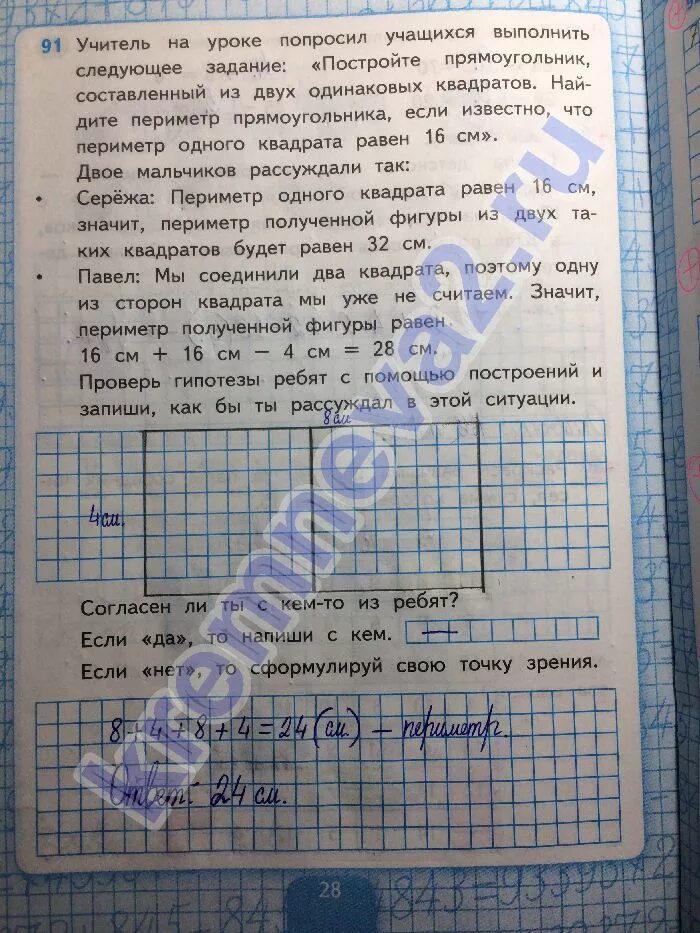 91 Учитель на уроке попросил учащихся выполнить
следующее задание: «Постройте прямоугольник,
составленный из двух одинаковых квадратов. Най-
дите периметр прямоугольника, если известно, что
периметр одного квадрата равен 16 см».
Двое мальчиков рассуждали так:
• Серёжа: Периметр одного квадрата равен 16 см,
значит, периметр полученной фигуры из двух та-
ких квадратов будет равен 32 см.
• Павел: Мы соединили два квадрата, поэтому одну
из сторон квадрата мы уже не считаем. Значит,
периметр полученной фигуры равен
16 см + 16 см − 4 см = 28 см.
Проверь гипотезы ребят с помощью построений и
запиши, как бы ты рассуждал в этой ситуации.
8см
4см.
Согласен ли ты с кем-то из ребят?
Если «да», то напиши с кем. —
Если «нет», то сформулируй свою точку зрения.
8+4+8+4=24(см.) — периметр.
Ответ: 24 см.
28
kremneva2.ru